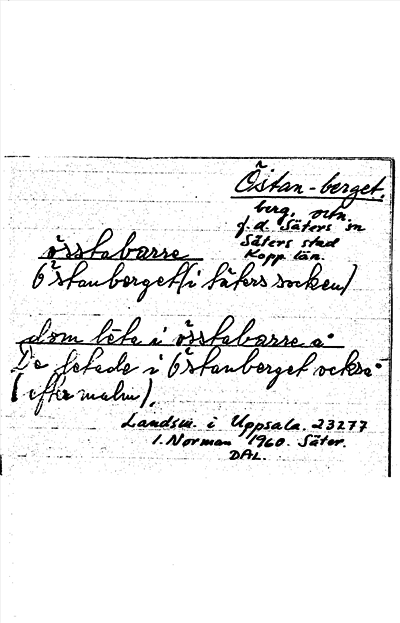 Östan-berget.
berg, ortn.
f.d. Säters sn
Säters stad
Kopp. län.
össtabarse
(Östanberget (i Säters socken)
dom leta i össtabarse å
De letade i Östanberget också
(efter malm).
Landsm. i Uppsala. 23277
I. Norman 1960. Säter.
DAL.